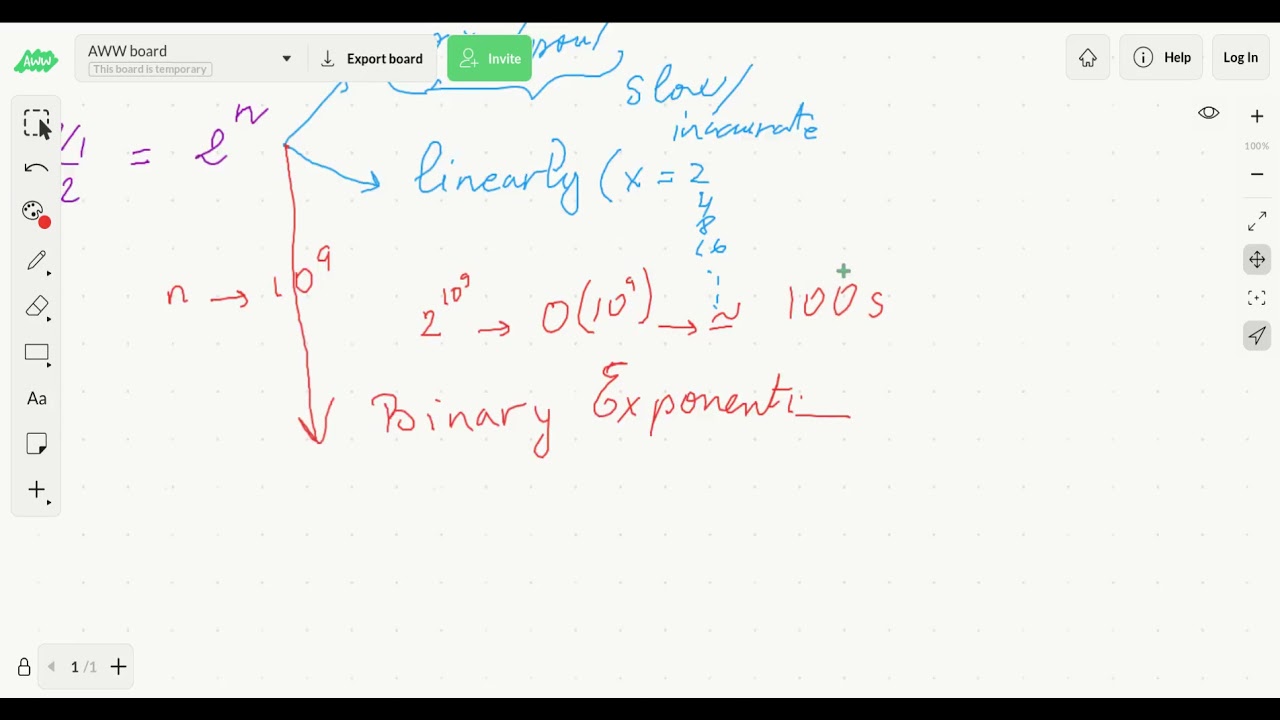 AWW board
This board is temporary
Export board
Invite
Help
Log In
AWW
slow/
inaccurate
= 2^n
2
linearly (x = 2
4
8
16
n → 10^9
2^10^9 → O(10^9) → ≃ 100 s
Binary Exponenti
100%
Aa
1 / 1